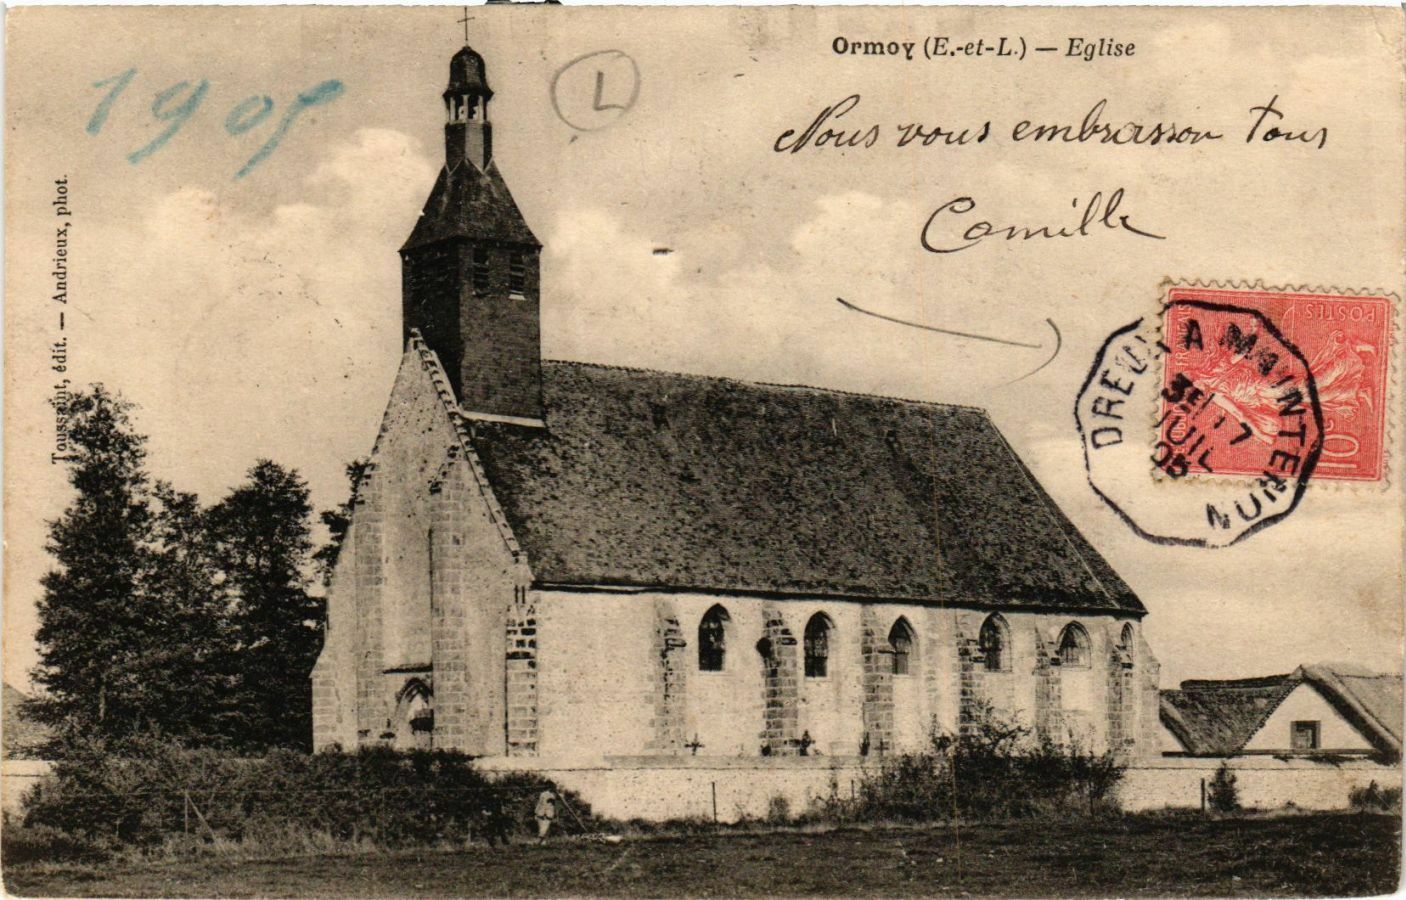 Ormoy (E.-et-L.) — Eglise
1905
L
Nous vous embrasson tous
Camille
Toussaint, édit. — Andrieux, phot.
POSTES
10
DREUX A MAINTENON
3E
17
JUIL
05